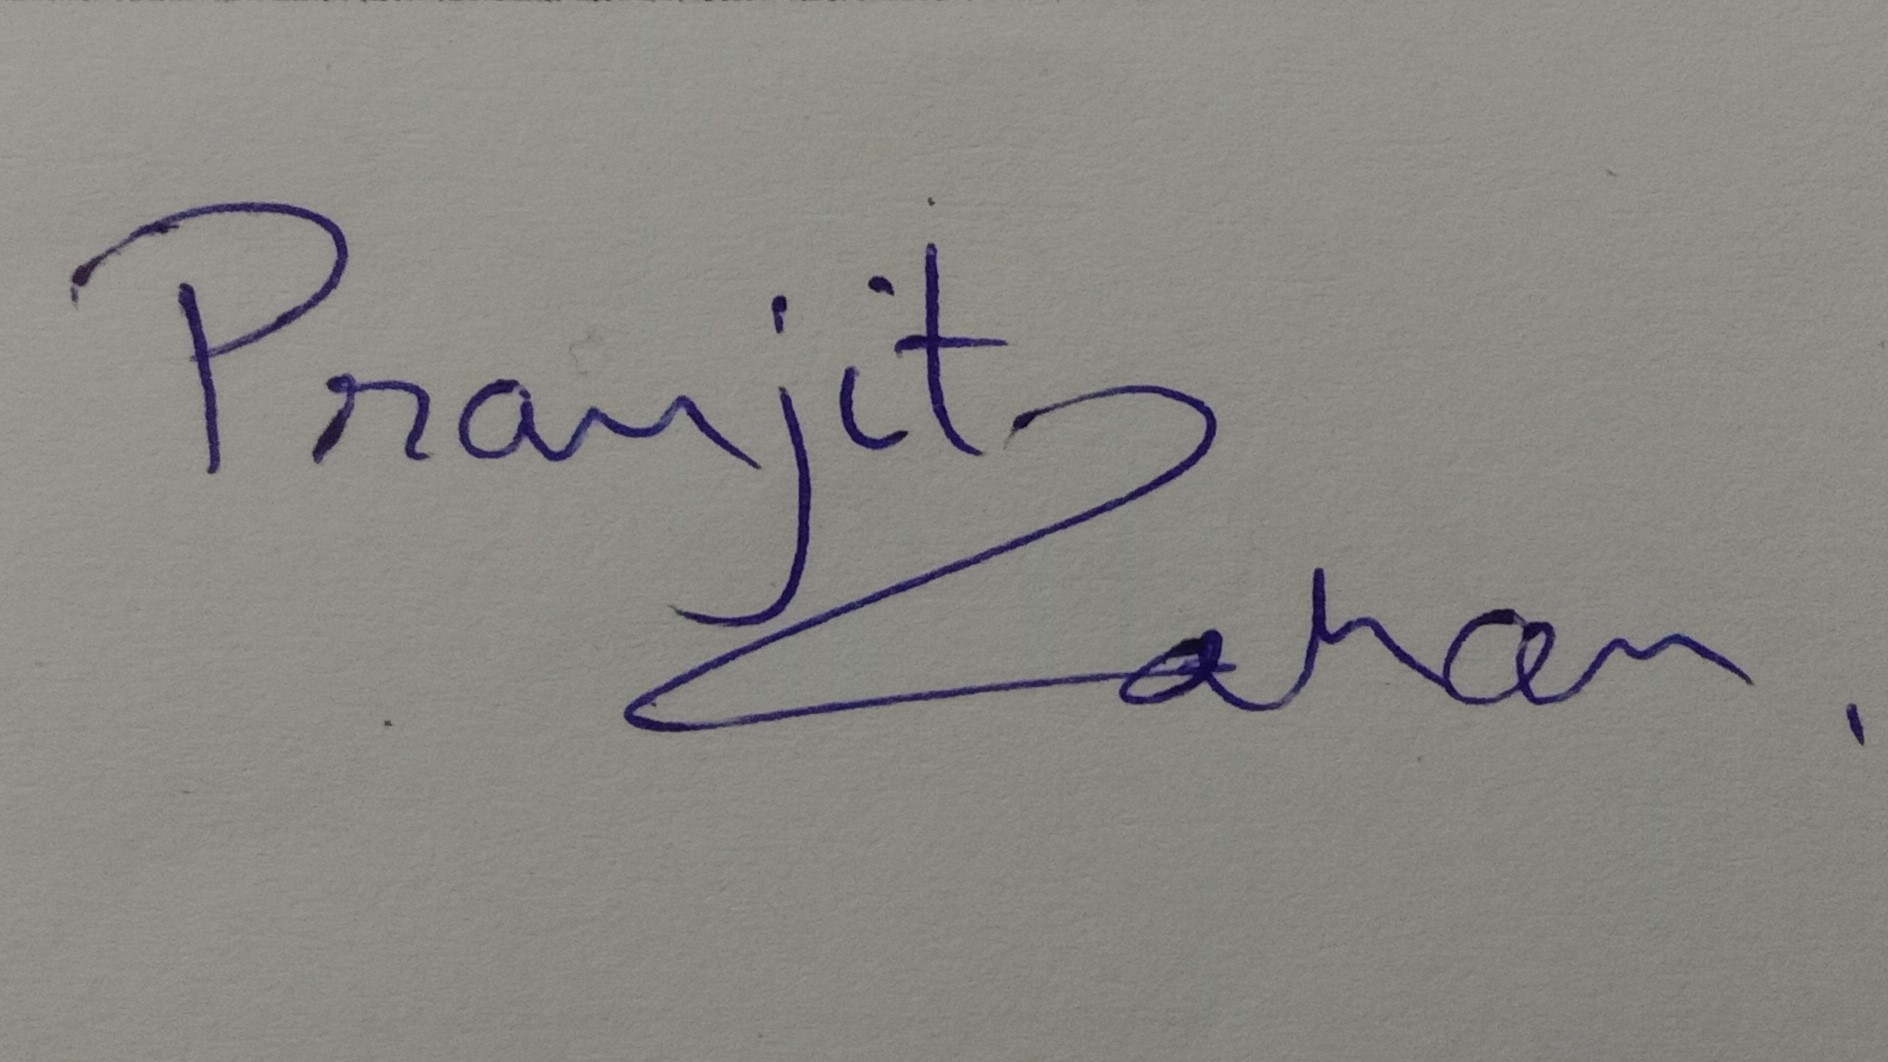 Pranjit
Zahan.